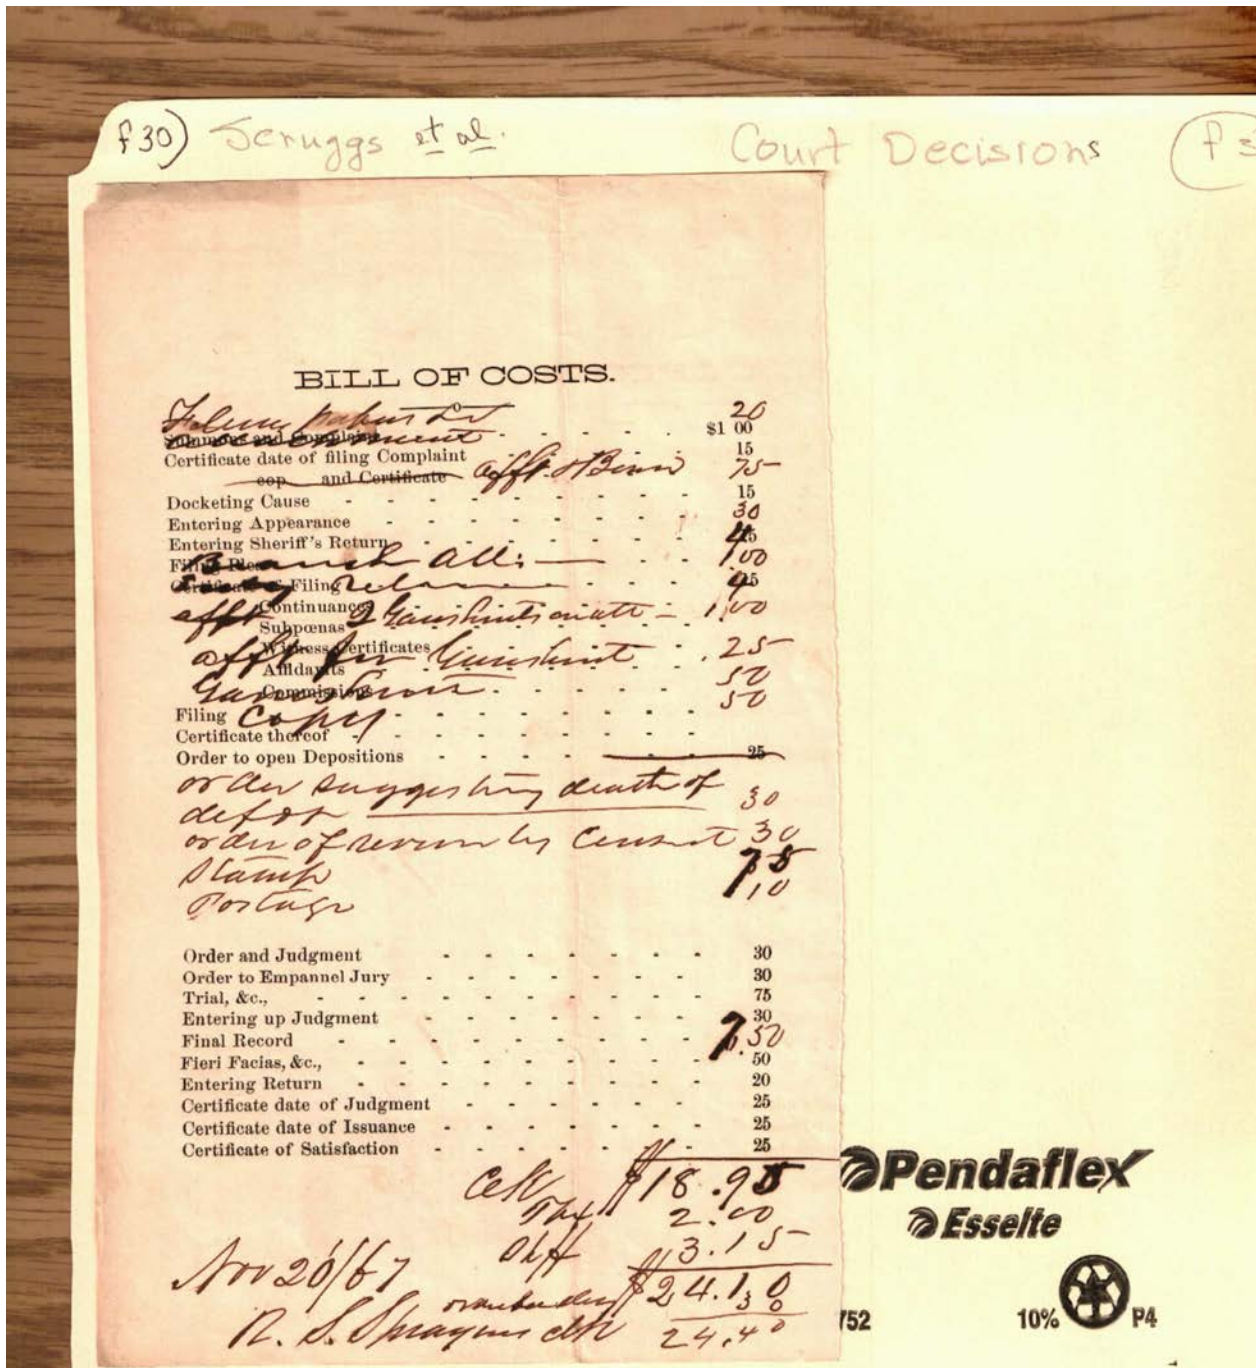 f30) Scruggs et al. Court Decisions f 3
BILL OF COSTS.
20
Summons and Complaint $1 00
Certificate date of filing Complaint 15
cop and Certificate afft. & 75
Docketing Cause 15
Entering Appearance 30
Entering Sheriff's Return
Filing All: 1.00
Certificate Filing
Continuances
afft 1.00
Subpœnas
Witness Certificates
afft for .25
Affidavits 50
Commissions 50
Filing Copy
Certificate thereof
Order to open Depositions 25
order suggesting death of 30
deft
order of by Consent 30
Stamp
Postage 10
Order and Judgment 30
Order to Empannel Jury 30
Trial, &c., 75
Entering up Judgment 30
Final Record 7.50
Fieri Facias, &c., 50
Entering Return 20
Certificate date of Judgment 25
Certificate date of Issuance 25
Certificate of Satisfaction 25
Clk $18.95
Tax 2.00
Shff 3.15
Nov 26/67 $24.10
30
R. S. clk 24.40
Pendaflex
Esselte
752 10% P4